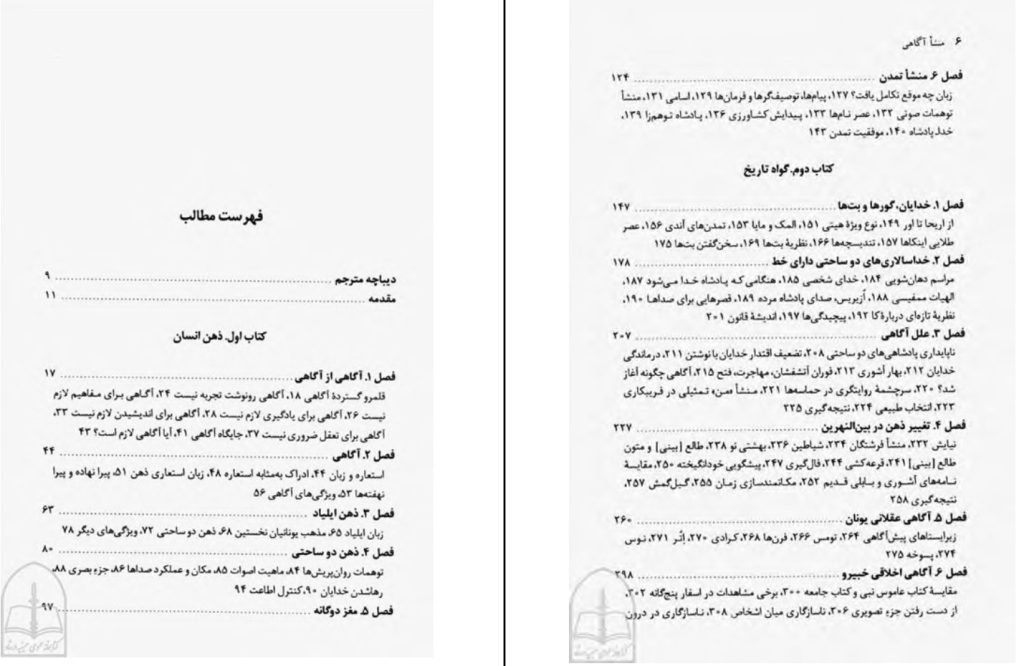 فهرست مطالب
دیباچه مترجم ........ ۹
مقدمه ........ ۱۱
کتاب اول. ذهن انسان
فصل ۱. آگاهی از آگاهی ........ ۱۷
قلمرو گستردهٔ آگاهی ۱۸، آگاهی رونوشت تجربه نیست ۲۴، آگاهی برای مفاهیم لازم
نیست ۲۶، آگاهی برای یادگیری لازم نیست ۲۸، آگاهی برای اندیشیدن لازم نیست ۳۳،
آگاهی برای تعقل ضروری نیست ۳۷، جایگاه آگاهی ۴۱، آیا آگاهی لازم است؟ ۴۳
فصل ۲. آگاهی ........ ۴۴
استعاره و زبان ۴۴، ادراک به‌مثابه استعاره ۴۸، زبان استعاری ذهن ۵۱، پیرا نهاده و پیرا
نهفته‌ها ۵۳، ویژگی‌های آگاهی ۵۶
فصل ۳. ذهن ایلیاد ........ ۶۳
زبان ایلیاد ۶۵، مذهب یونانیان نخستین ۶۸، ذهن دوساحتی ۷۲، ویژگی‌های دیگر ۷۸
فصل ۴. ذهن دو ساحتی ........ ۸۰
توهمات روان‌پریش‌ها ۸۴، ماهیت اصوات ۸۵، مکان و عملکرد صداها ۸۶، جزءِ بصری ۸۸،
رهاشدن خدایان ۹۰، کنترل اطاعت ۹۴
فصل ۵. مغز دوگانه ........ ۹۷
۶ منشأ آگاهی
فصل ۶. منشأ تمدن ........ ۱۲۴
زبان چه موقع تکامل یافت؟ ۱۲۷، پیام‌ها، توصیفگرها و فرمان‌ها ۱۲۹، اسامی ۱۳۱، منشأ
توهمات صوتی ۱۳۲، عصر نام‌ها ۱۳۳، پیدایش کشاورزی ۱۳۶، پادشاه توهم‌زا ۱۳۹،
خدا‌ـ‌پادشاه ۱۴۰، موفقیت تمدن ۱۴۳
کتاب دوم. گواه تاریخ
فصل ۱. خدایان، گورها و بت‌ها ........ ۱۴۷
از اریحا تا اور ۱۴۹، نوع ویژهٔ هیتی ۱۵۱، المک و مایا ۱۵۳، تمدن‌های آندی ۱۵۶، عصر
طلایی اینکاها ۱۵۷، تندیسچه‌ها ۱۶۶، نظریهٔ بت‌ها ۱۶۹، سخن‌گفتن بت‌ها ۱۷۵
فصل ۲. خداسالاری‌های دو ساحتی دارای خط ........ ۱۷۸
مراسم دهان‌شویی ۱۸۴، خدای شخصی ۱۸۵، هنگامی که پادشاه خدا می‌شود ۱۸۷،
الهیات ممفیسی ۱۸۸، اُزیریس، صدای پادشاه مرده ۱۸۹، قصرهایی برای صداها ۱۹۰،
نظریهٔ تازه‌ای دربارهٔ کا ۱۹۲، پیچیدگی‌ها ۱۹۷، اندیشهٔ قانون ۲۰۱
فصل ۳. علل آگاهی ........ ۲۰۷
ناپایداری پادشاهی‌های دو ساحتی ۲۰۸، تضعیف اقتدار خدایان با نوشتن ۲۱۱، درماندگی
خدایان ۲۱۲، بهار آشوری ۲۱۳، فوران آتشفشان، مهاجرت، فتح ۲۱۵، آگاهی چگونه آغاز
شد؟ ۲۲۰، سرچشمهٔ روایتگری در حماسه‌ها ۲۲۱، منشأ «من» تمثیلی در فریبکاری
۲۲۳، انتخاب طبیعی ۲۲۴، نتیجه‌گیری ۲۲۵
فصل ۴. تغییر ذهن در بین‌النهرین ........ ۲۲۷
نیایش ۲۳۲، منشأ فرشتگان ۲۳۴، شیاطین ۲۳۶، بهشتی نو ۲۳۸، طالع [بینی] و متون
طالع [بینی] ۲۴۱، قرعه‌کشی ۲۴۴، فال‌گیری ۲۴۷، پیشگویی خودانگیخته ۲۵۰، مقایسهٔ
نامه‌های آشوری و بابلی قدیم ۲۵۲، مکانمندسازی زمان ۲۵۵، گیل‌گمش ۲۵۷،
نتیجه‌گیری ۲۵۸
فصل ۵. آگاهی عقلانی یونان ........ ۲۶۰
زیرایستاهای پیش‌آگاهی ۲۶۴، تومس ۲۶۶، فرن‌ها ۲۶۸، کرادی ۲۷۰، اِتُر ۲۷۱، نوس
۲۷۴، پسوخه ۲۷۵
فصل ۶. آگاهی اخلاقی خبیرو ........ ۲۹۸
مقایسهٔ کتاب عاموس نبی و کتاب جامعه ۳۰۰، برخی مشاهدات در اسفار پنج‌گانه ۳۰۲،
از دست رفتن جزءِ تصویری ۳۰۶، ناسازگاری میان اشخاص ۳۰۸، ناسازگاری در درون